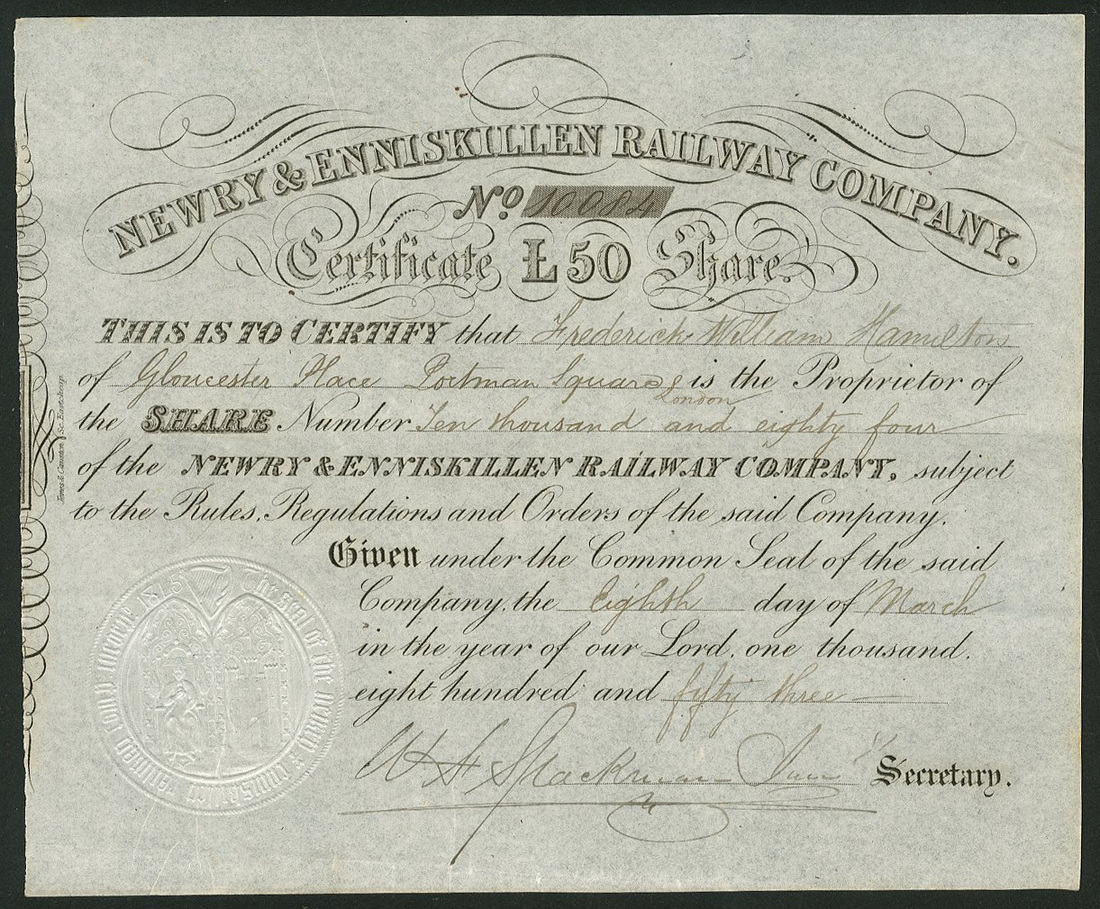 NEWRY & ENNISKILLEN RAILWAY COMPANY.
No. 10084
Certificate £50 Share.
THIS IS TO CERTIFY that Frederick William Hamilton
of Gloucester Place Portman Square London is the Proprietor of
the SHARE Number Ten thousand and eighty four
of the NEWRY & ENNISKILLEN RAILWAY COMPANY, subject
to the Rules, Regulations and Orders of the said Company.
Given under the Common Seal of the said
Company, the Eighth day of March
in the year of our Lord, one thousand.
eight hundred and fifty three
W F Spackman Junr Secretary.
The seal of the newry & enniskillen railway company 1845